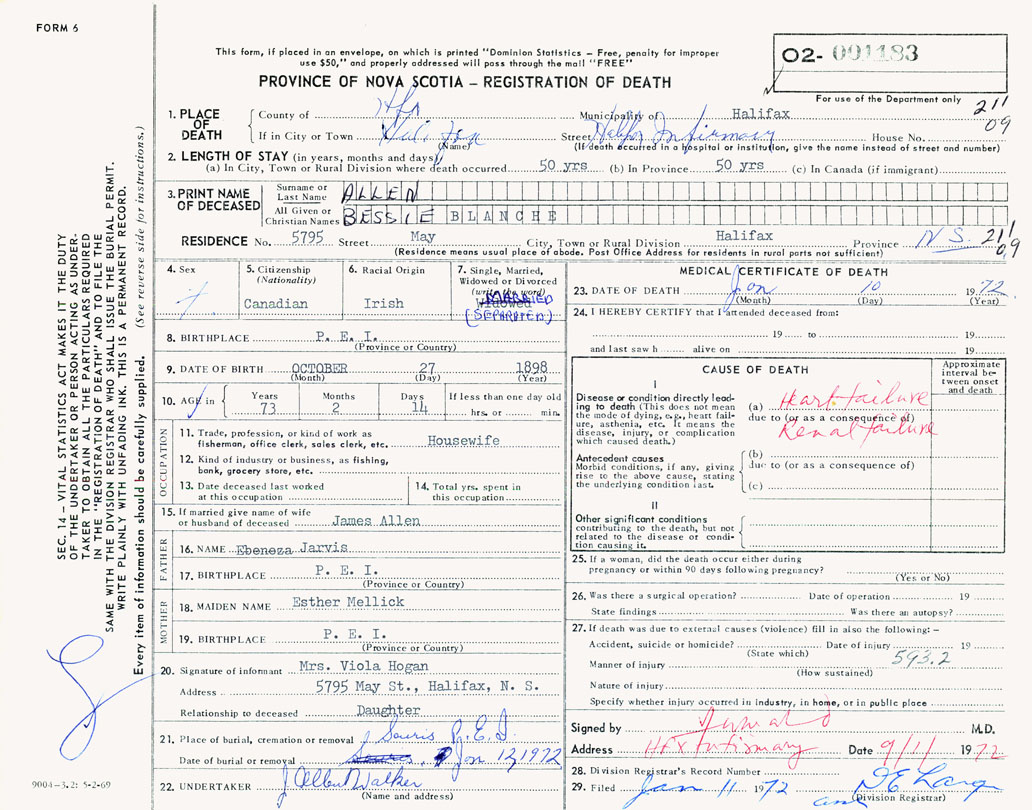 FORM 6
This form, if placed in an envelope, on which is printed "Dominion Statistics – Free, penalty for improper
use $50," and properly addressed will pass through the mail "FREE"
PROVINCE OF NOVA SCOTIA – REGISTRATION OF DEATH
02- 001183
For use of the Department only
211
09
1. PLACE OF DEATH
County of Hfx Municipality of Halifax
If in City or Town Halifax (Name) Street Halifax Infirmary House No.
(If death occurred in a hospital or institution, give the name instead of street and number)
2. LENGTH OF STAY (in years, months and days)
(a) In City, Town or Rural Division where death occurred 50 yrs (b) In Province 50 yrs (c) In Canada (if immigrant)
3. PRINT NAME OF DECEASED
Surname or Last Name ALLEN
All Given or Christian Names BESSIE BLANCHE
RESIDENCE No. 5795 Street May City, Town or Rural Division Halifax Province N.S. 211 09
(Residence means usual place of abode. Post Office Address for residents in rural parts not sufficient)
4. Sex
5. Citizenship (Nationality) Canadian
6. Racial Origin Irish
7. Single, Married, Widowed or Divorced (write the word) Widowed MARRIED (SEPARATED)
8. BIRTHPLACE P. E. I.
(Province or Country)
9. DATE OF BIRTH OCTOBER 27 1898
(Month) (Day) (Year)
10. AGE in Years 73 Months 2 Days 14 If less than one day old hrs. or min.
OCCUPATION
11. Trade, profession, or kind of work as
fisherman, office clerk, sales clerk, etc. Housewife
12. Kind of industry or business, as fishing,
bank, grocery store, etc.
13. Date deceased last worked
at this occupation
14. Total yrs. spent in
this occupation
15. If married give name of wife
or husband of deceased James Allen
FATHER
16. NAME Ebeneza Jarvis
17. BIRTHPLACE P. E. I.
(Province or Country)
MOTHER
18. MAIDEN NAME Esther Mellick
19. BIRTHPLACE P. E. I.
(Province or Country)
20. Signature of informant Mrs. Viola Hogan
Address 5795 May St., Halifax, N. S.
Relationship to deceased Daughter
21. Place of burial, cremation or removal Souris P.E.I
Date of burial or removal Jan 12, 1972
22. UNDERTAKER J Albert Walker
(Name and address)
MEDICAL CERTIFICATE OF DEATH
23. DATE OF DEATH Jan 10 1972
(Month) (Day) (Year)
24. I HEREBY CERTIFY that I attended deceased from:
19 to 19
and last saw h alive on 19
CAUSE OF DEATH
Approximate interval between onset and death
I
Disease or condition directly leading to death (This does not mean the mode of dying, e.g., heart failure, asthenia, etc. It means the disease, injury, or complication which caused death.)
(a) Heart failure
due to (or as a consequence of)
Renal failure
Antecedent causes
Morbid conditions, if any, giving rise to the above cause, stating the underlying condition last.
(b)
due to (or as a consequence of)
(c)
II
Other significant conditions
contributing to the death, but not related to the disease or condition causing it.
25. If a woman, did the death occur either during
pregnancy or within 90 days following pregnancy?
(Yes or No)
26. Was there a surgical operation? Date of operation 19
State findings Was there an autopsy?
27. If death was due to external causes (violence) fill in also the following: –
Accident, suicide or homicide? Date of injury 19
(State which) 593.2
Manner of injury
(How sustained)
Nature of injury
Specify whether injury occurred in industry, in home, or in public place
Signed by M.D.
Address Hfx Infirmary Date 9/1/ 1972
28. Division Registrar's Record Number
29. Filed Jan 11 1972
(Division Registrar)
SEC. 14 – VITAL STATISTICS ACT MAKES IT THE DUTY
OF THE UNDERTAKER OR PERSON ACTING AS UNDER-
TAKER TO OBTAIN ALL THE PARTICULARS REQUIRED
IN THE "REGISTRATION OF DEATH" AND TO FILE THE
SAME WITH THE DIVISION REGISTRAR WHO SHALL ISSUE THE BURIAL PERMIT.
WRITE PLAINLY WITH UNFADING INK. THIS IS A PERMANENT RECORD.
Every item of information should be carefully supplied. (See reverse side for instructions.)
9004-3.2: 5-2-69